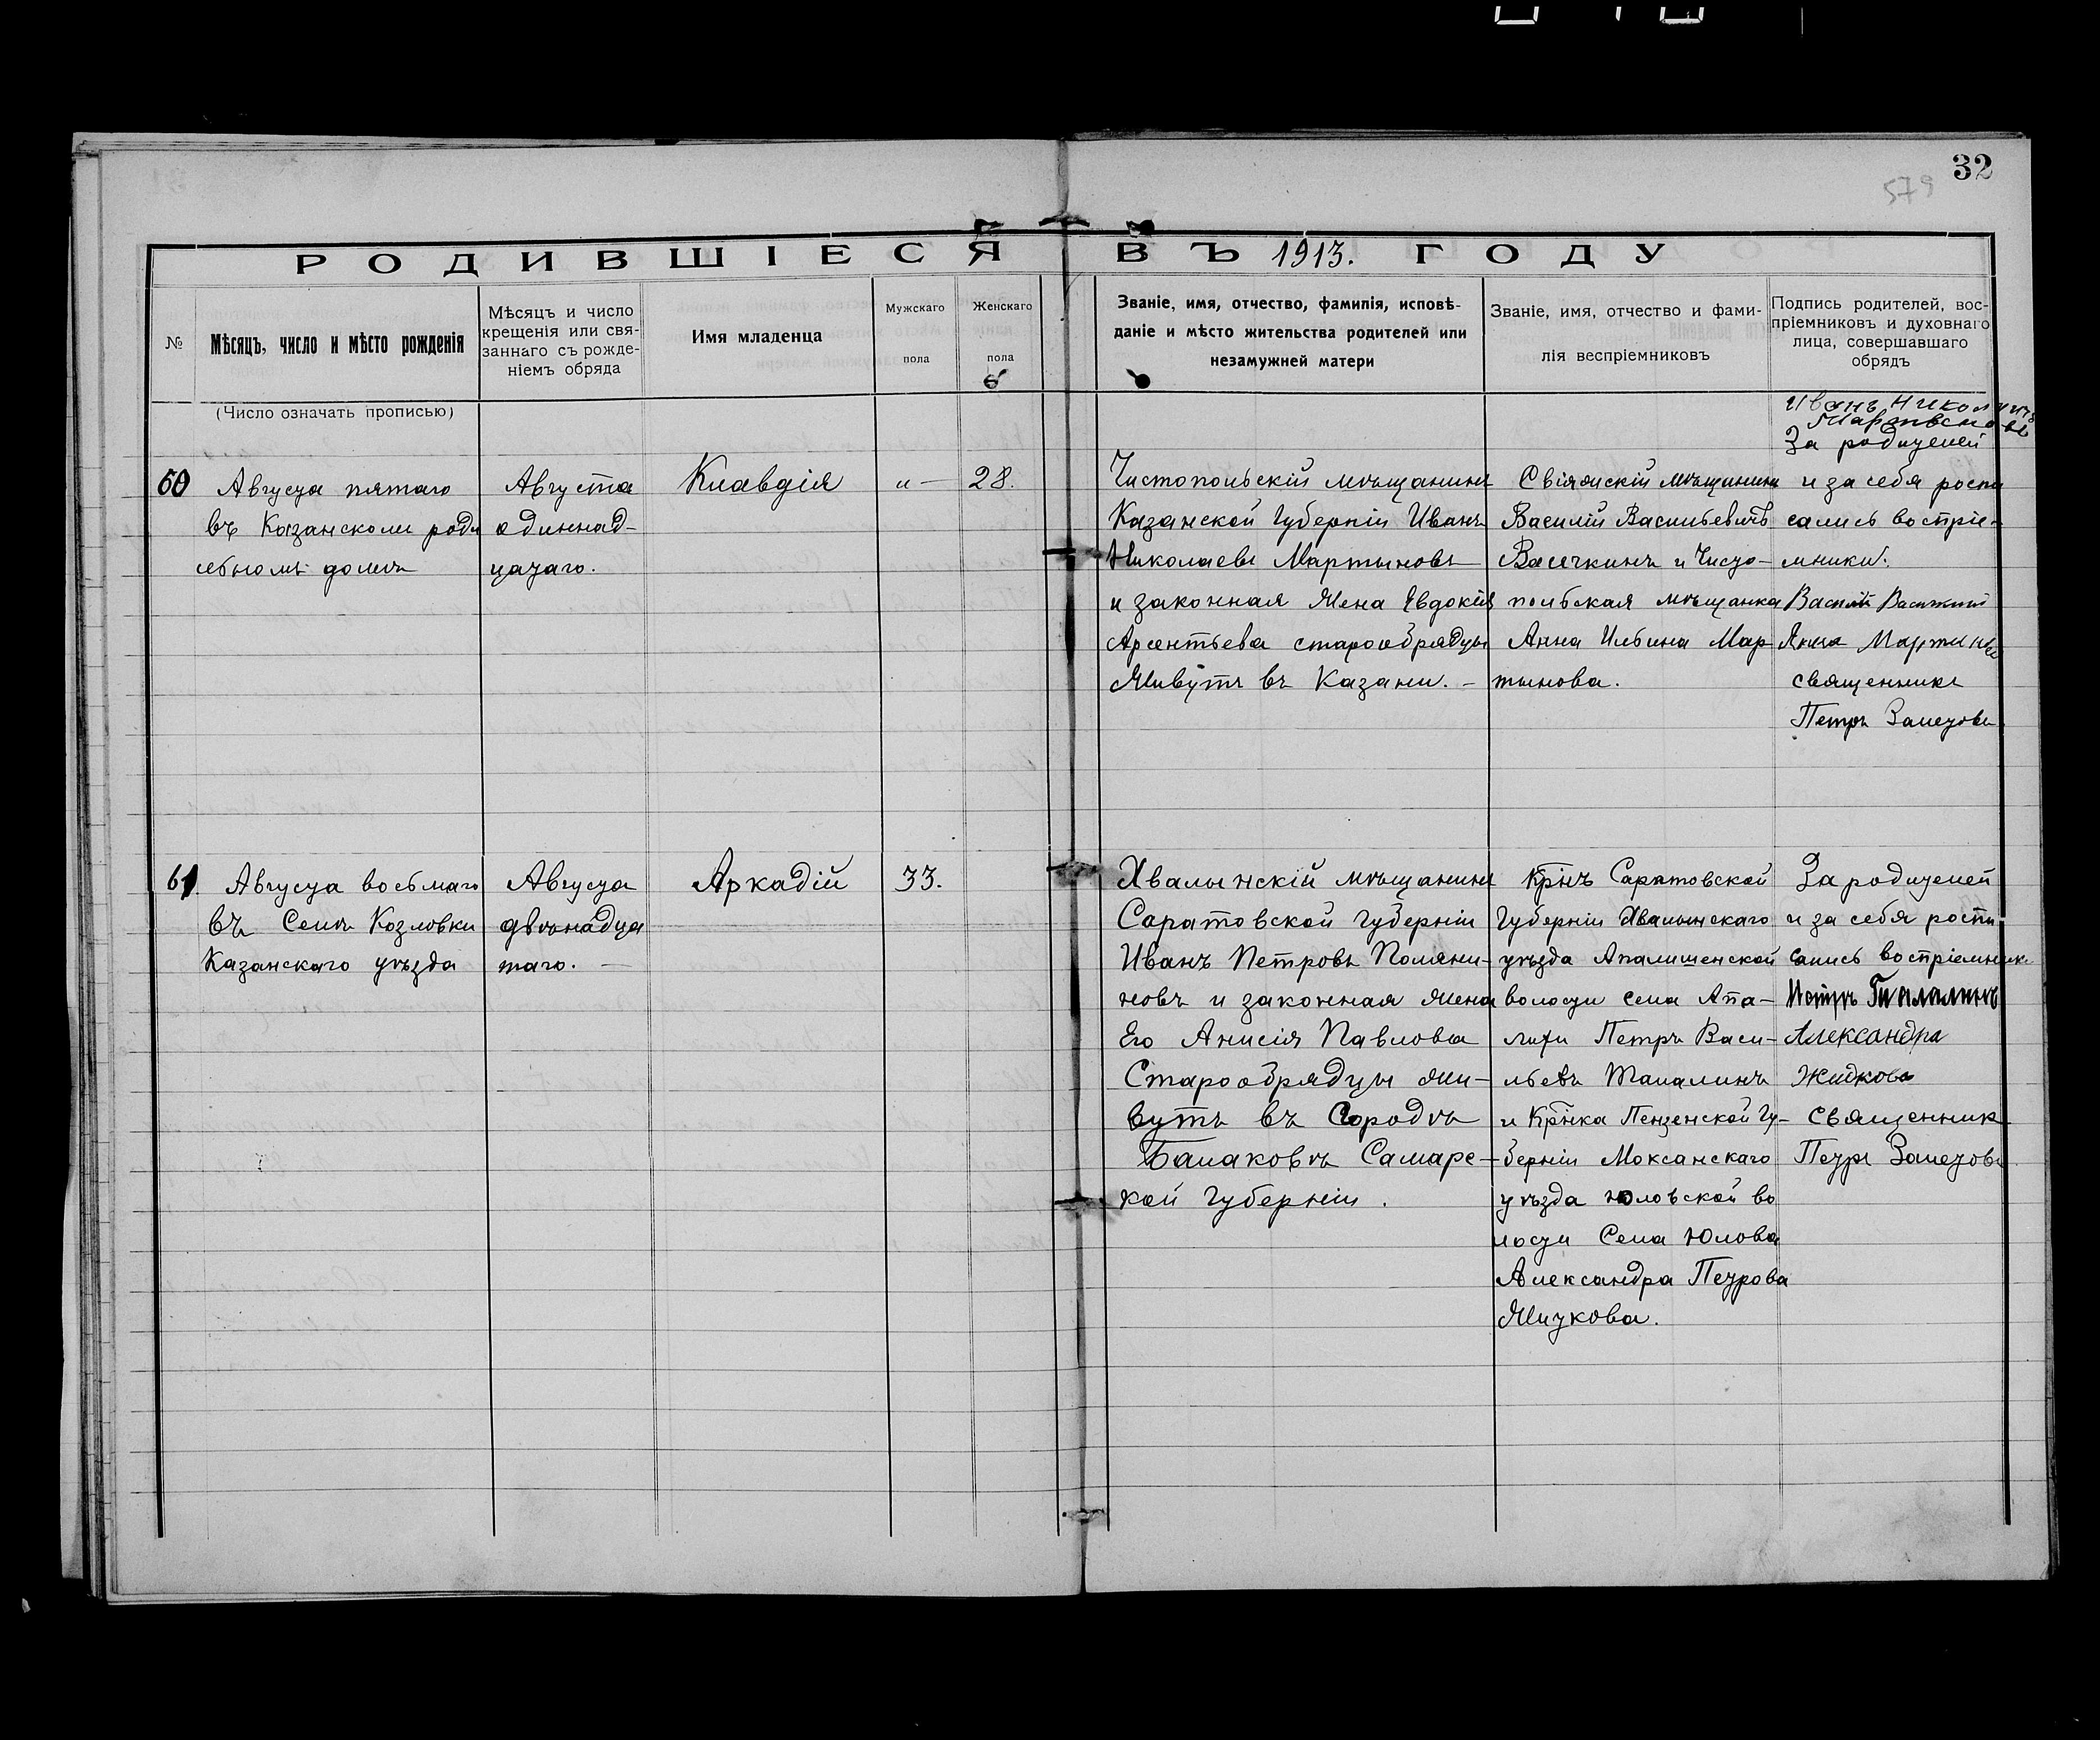 32
579
РОДИВШІЕСЯ ВЪ 1913. ГОДУ
№
Мѣсяцъ, число и мѣсто рожденія
Мѣсяцъ и число
крещенія или свя-
заннаго съ рожде-
ніемъ обряда
Имя младенца
Мужскаго
пола
Женскаго
пола
Званіе, имя, отчество, фамилія, исповѣ-
даніе и мѣсто жительства родителей или
незамужней матери
Званіе, имя, отчество и фами-
лія веспріемниковъ
Подпись родителей, вос-
пріемниковъ и духовнаго
лица, совершавшаго
обрядъ
(Число означать прописью)
60
Августа пятаго
въ Казанскомъ роди
льномъ домѣ
Августа
одиннад-
цатаго.
Клавдія
"—
28.
Чистопольскій мѣщанинъ
Казанской Губерніи Иванъ
Николаевъ Мартыновъ
и законная жена Евдокія
Арсентьева старообрядцы
Живутъ въ Казани. –
Свіяжскій мѣщанинъ
Василій Васильевичъ
Васечкинъ и Чисто-
польская мѣщанка
Анна Ильина Мар
тынова.
Иванъ
За родителей
и за себя роспи
сались воспріе-
мники.
Василій
Анна
священникъ
Петръ Залетовъ
61.
Августа восьмаго
въ Селѣ Козловки
Казанскаго уѣзда
Августа
двѣнадца
таго. –
Аркадій
33.
Хвалынскій мѣщанинъ
Саратовской Губерніи
Иванъ Петровъ Поляни-
новъ и законная жена
Его Анисія Павлова
Старообрядцы жи-
вутъ въ Городѣ
Балаковѣ Самарс-
кой Губерніи.
Крнъ Саратовской
Губерніи Хвалынскаго
уѣзда Апалишенской
волости села Апа-
лихи Петръ Васи-
льевъ Талалинъ
и Крнка Пензенской Гу-
берніи Моксанскаго
уѣзда Юловской во
лости Села Юлова
Александра Петрова
Житкова.
За родителей
и за себя роспи
сались воспріемник
Петръ Талалинъ
Александра
Жидкова
Священник
Петръ Залетовъ